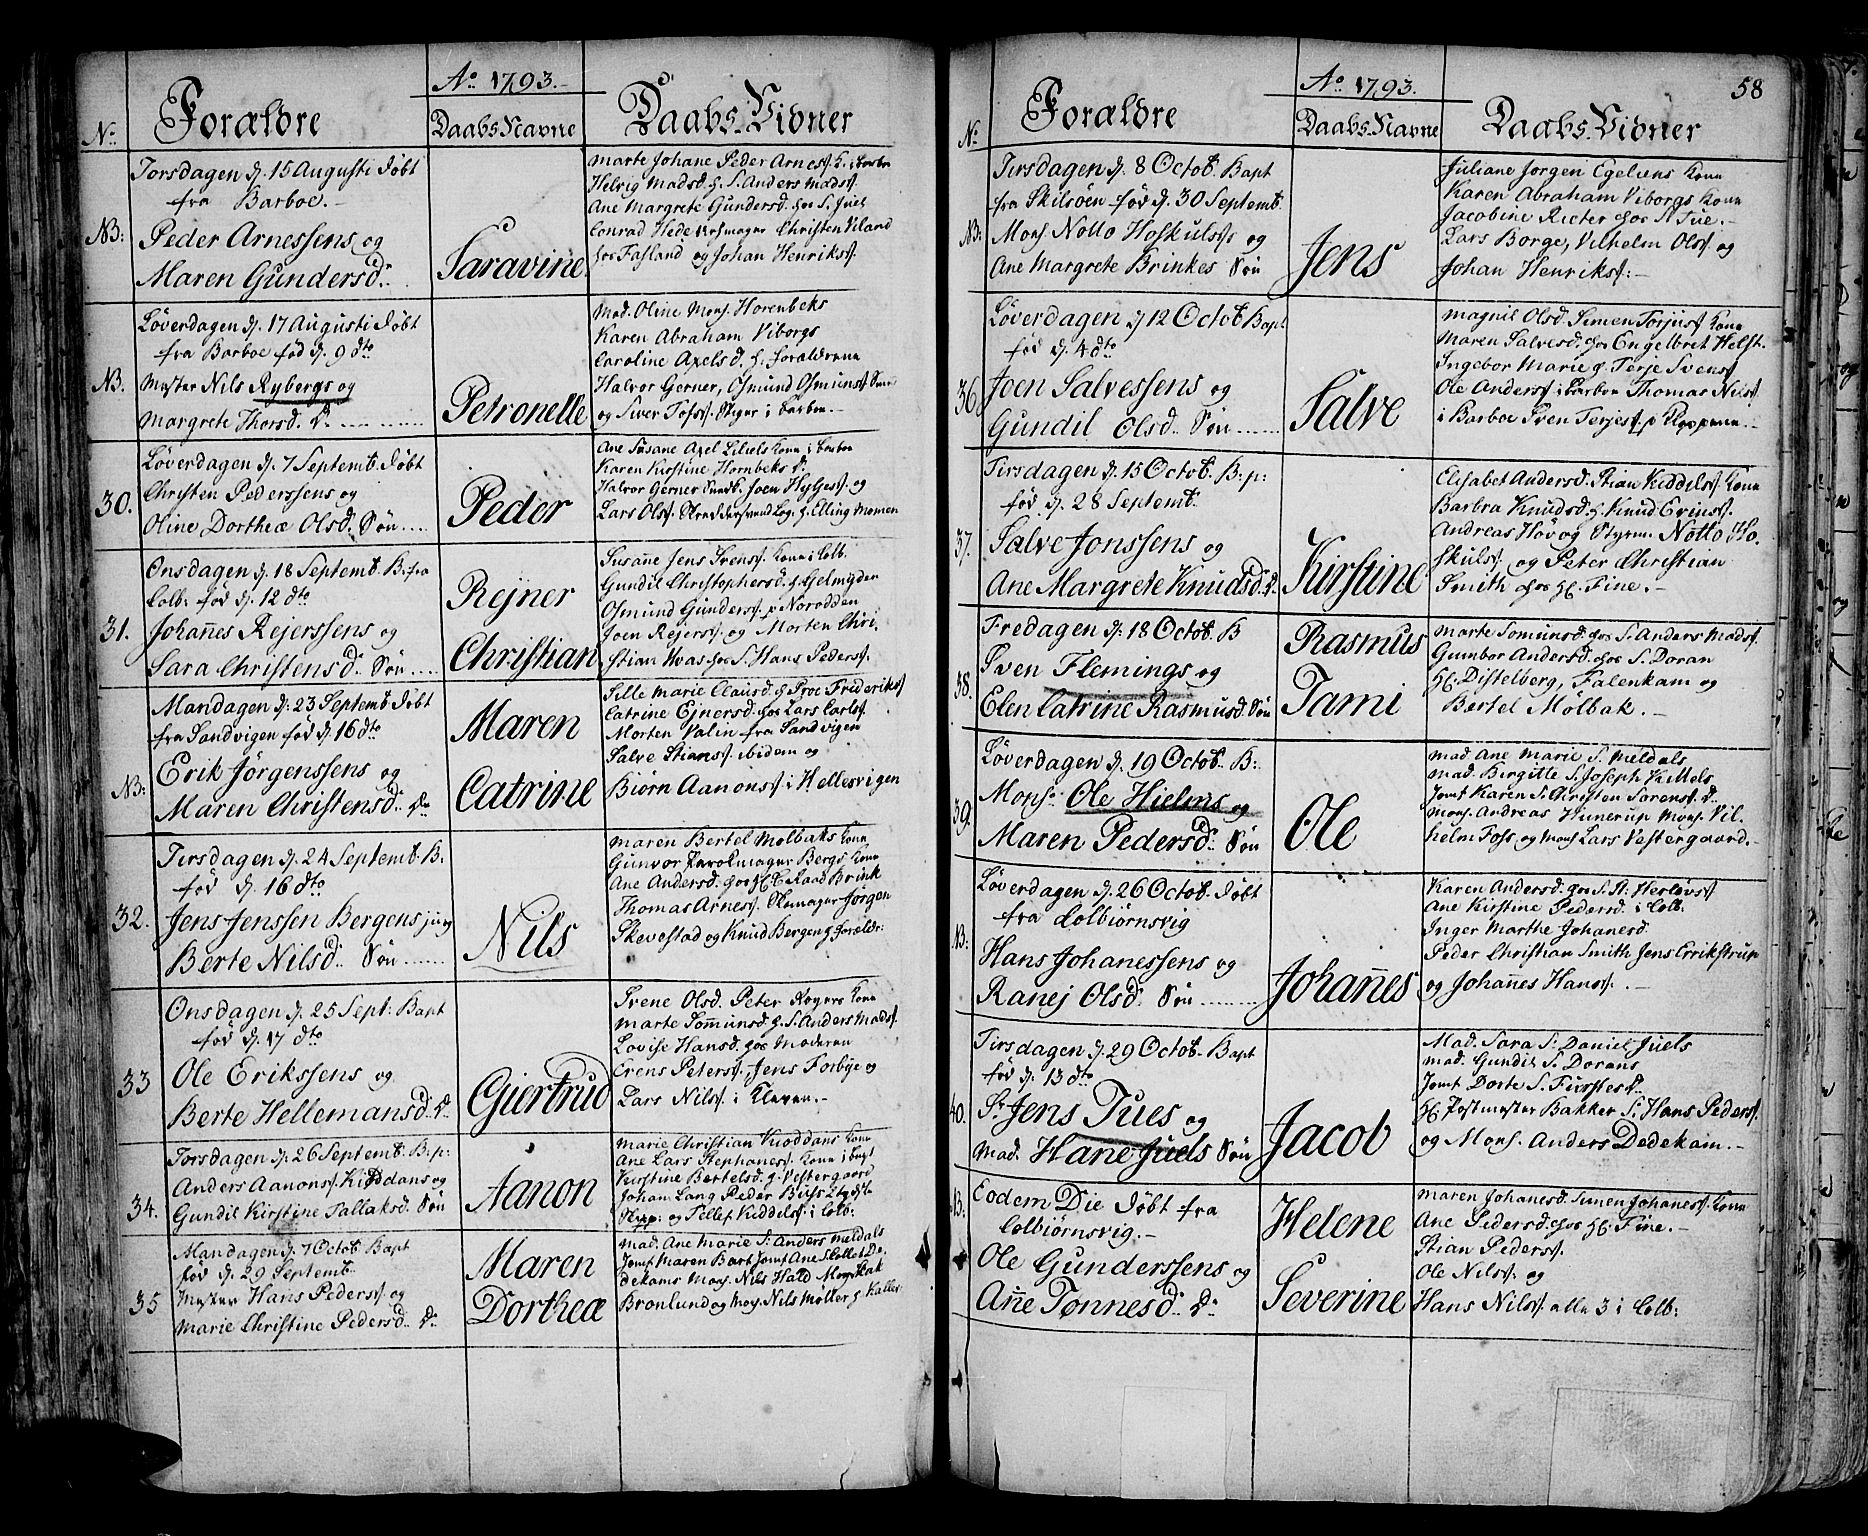 Aº 1793.
Nº Forældre
Daabs Navne
Daabs Vidner
Torsdagen d. 15 Augusti døbt
fra Barboe.
NB:
Peder Arnessens og
Maren Gundersd.
Saravine
Marte Johane Peder Arness. K. i Barboe
Helvig Madsd. h. S. Anders Madss.
Ane Margrete Gundersd. hos S. Juel
Conrad Hede Christen Viland
hos Fasland og Johan Henrikss.
Løverdagen d. 17 Augusti døbt
fra Barboe fød d. 9 dto
NB.
Mester Nils Rybergs og
Margrete Thorsd. D.
Petronelle
Mad. Oline Mons. Horenbeks
Karen Abraham Viborgs
Caroline Axelsd. h. Forældrene
Halvor Gerner, Osmund Osmunss.
og Siver Tofss. i Barboe.
Løverdagen d. 7 Septemb. døbt
30.
Christen Pederssens og
Oline Dortheæ Olsd. Søn
Peder
Ane Susane Axel Kone i Barboe
Karen Kirstine Hornbeks D.
Halvor Gerner Sundb. Joen Hylgess. og
Lars Olss. Skreddersvend Log. h. Elling Momen
Onsdagen d. 18 Septemb. B. fra
Colb. fød d. 12 dto
31.
Johañes Rejerssens og
Sara Christensd. Søn
Rejner
Christian
Susañe Jens Svenss. Kone i Colb.
Gundil Christophersd. h. Gelmyden
Osmund Gunderss. p. Norodden
Joen Rejerss. og Morten Chri-
stian Hvas hos S. Hans Pederss.
Mandagen d. 23 Septemb døbt
fra Sandvigen fød d. 16 dto
NB:
Erik Jörgenssens og
Maren Christensd. D.
Maren
Catrine
Sille Marie Clausd. h. Proc Frederikss
Catrine Ejnersd. hos Lars Carlss.
Morten Valin fra Sandvigen
Salve Stianss. ibidem og
Biørn Aanonss. i Hellesvigen
Tirsdagen d. 24 Septemb. B.
fød d. 16 dto
32.
Jens Jenssen Bergens jung
Berte Nilsd. Søn
Nils
Maren Bertel Molbaks Kone
Gunvor Bergs Kone
Ane Andersd. hos H. C. Raad Brink
Thomas Arness. Skomager Jørgen
Skevestad og Knud Bergen h. Forældr:
Onsdagen d. 25 Sept: Bapt
fød d. 17 dto
33
Ole Erikssens og
Berte Hellemansd. D.
Giertrud
Svene Olsd. Peter Kone
Marte Somunsd. h. S. Anders Madss.
Lovise Hansd. hos Moderen
Erens Peterss. Jens Forbye og
Lars Nilss. i Kleven.
Torsdagen d. 26 Septemb. B. p:
34.
Anders Aanonss. Kiddans og
Gundil Kirstine Tallaksd. Søn
Aanon
Marie Christian Kiøddans Kone
Ane Lars Stephaness. Kone i bugt
Kirstine Bertelsd. h. Vestergaard
Johan Lang Peder Buss
og Tellef Kiddelss. i Colb:
Mandagen d. 7 Octob. Bapt
fød d. 29 Septemb.
35
Mester Hans Pederss. og
Marie Christine Pedersd. D.
Maren
Dortheæ
Mad. Ane Marie S. Anders Meldals
Jomf. Maren Bart Jomf. Ane S. Collet De-
dekams Mons. Nils Hald
Bronlund og Mons. Nils Møller h. Kaller
58
Aº 1793.
Nº Forældre
Daabs. Navne
Daabs. Vidner
Tirsdagen d. 8 Octob. Bapt
fra Skilsöen fød d. 30 Septemb.
NB:
Mons. Notto Hoskulss. og
Ane Margrete Brinkes Søn
Jens
Juliane Jorgen Egeliens Kone
Karen Abraham Viborgs Kone
Jacobine Rieter hos S. Tue.
Lars Borge, Vilhelm Olss. og
Johan Henrikss:
Løverdagen d. 12 Octob Bapt
fød d. 4 dto
36.
Joen Salvessens og
Gundil Olsd. Søn
Salve
Magnil Olsd. Simen Torjuss. Kone
Maren Salvesd. hos Engelbret Helst.
Ingebor Marie g. Terje Svenss.
Ole Anderss. i Barboe Thomas Nilss.
i Barboe Sven Terjess. p.
Tirsdagen d. 15 Octob. B. p:
fød d. 28 Septemb.
37.
Salve Jonssens og
Ane Margrete Knudsd. D.
Kirstine
Elisabet Andersd. Stian Kiddelss. Kone
Barbra Knudsd. h. Knud Evinss.
Andreas Høv og Styrm. Notto Ho-
skulss. og Peter Christian
Smith hos H. Fine.
Fredagen d. 18 Octob. B
38.
Sven Flemings og
Elen Catrine Rasmusd. Søn
Rasmus
Tami
Marte Somunsd. hos S. Anders Madss.
Gumbor Andersd. hos S. Doran
H. Distelberg, Falenkam og
Bertel Mölbak.
Løverdagen d. 19 Octob. B:
39.
Mons. Ole Hielms og
Maren Pedersd. Søn
Ole
Mad. Ane Marie S. Meldals
Mad. Birgitte S. Joseph Kittels
Jomf. Karen S. Christen Sorenss. D.
Mons. Andreas Hunerup Mons. Vil-
helm Foss og Mons. Lars Vestergaard.
Løverdagen d. 26 Octob. døbt
fra Colbiørnsvig
NB:
Hans Johanessens og
Ranej Olsd. Søn
Johañes
Karen Andersd. hos S. St. Herløvss.
Ane Kirstine Pedersd. i Colb:
Inger Marthe Johanesd.
Peder Christian Smith Jens Errikstrup
og Johañes Hanss.
Tirsdagen d. 29 Octob. Bapt
fød d. 13 dto
40.
Sr. Jens Tues og
Mad. Hane Juels Søn
Jacob
Mad. Sara S. Daniel Juels
Mad. Gundil S. Dorans
Jomf. Dorte S. Furstes D.
H. Postmester Bakker S. Hans Pederss.
og Mons. Anders Dedekam.
Eodem Die døbt fra
NB.
Colbiørnsvig.
Ole Gunderssens og
Añe Tønnesd. D.
Helene
Severine
Maren Johanesd. Simen Johaness. Kone
Ane Pedersd. hos H. Fine.
Stian Pederss.
Ole Nilss. og
Hans Nilss. alle 3 i Colb: